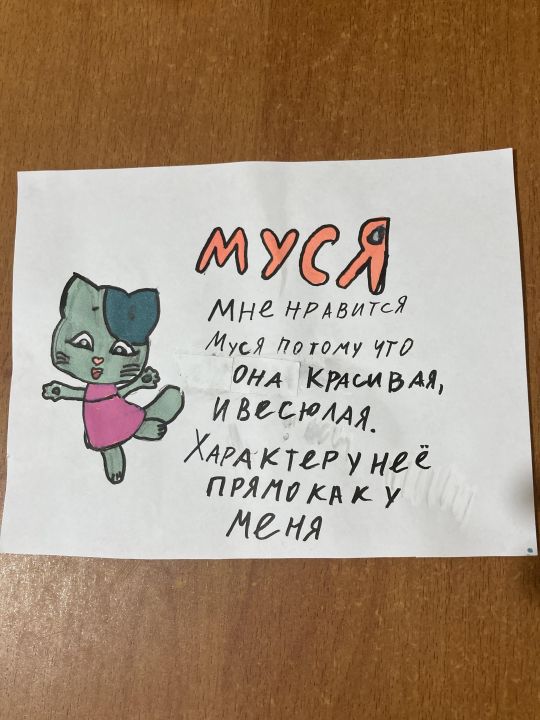 МУСЯ
МНЕ НРАВИТСЯ
МУСЯ ПОТОМУ ЧТО
ОНА КРАСИВАЯ,
И ВЕСЮЛАЯ.
ХАРАКТЕР У НЕЁ
ПРЯМО КАК У
МЕНЯ